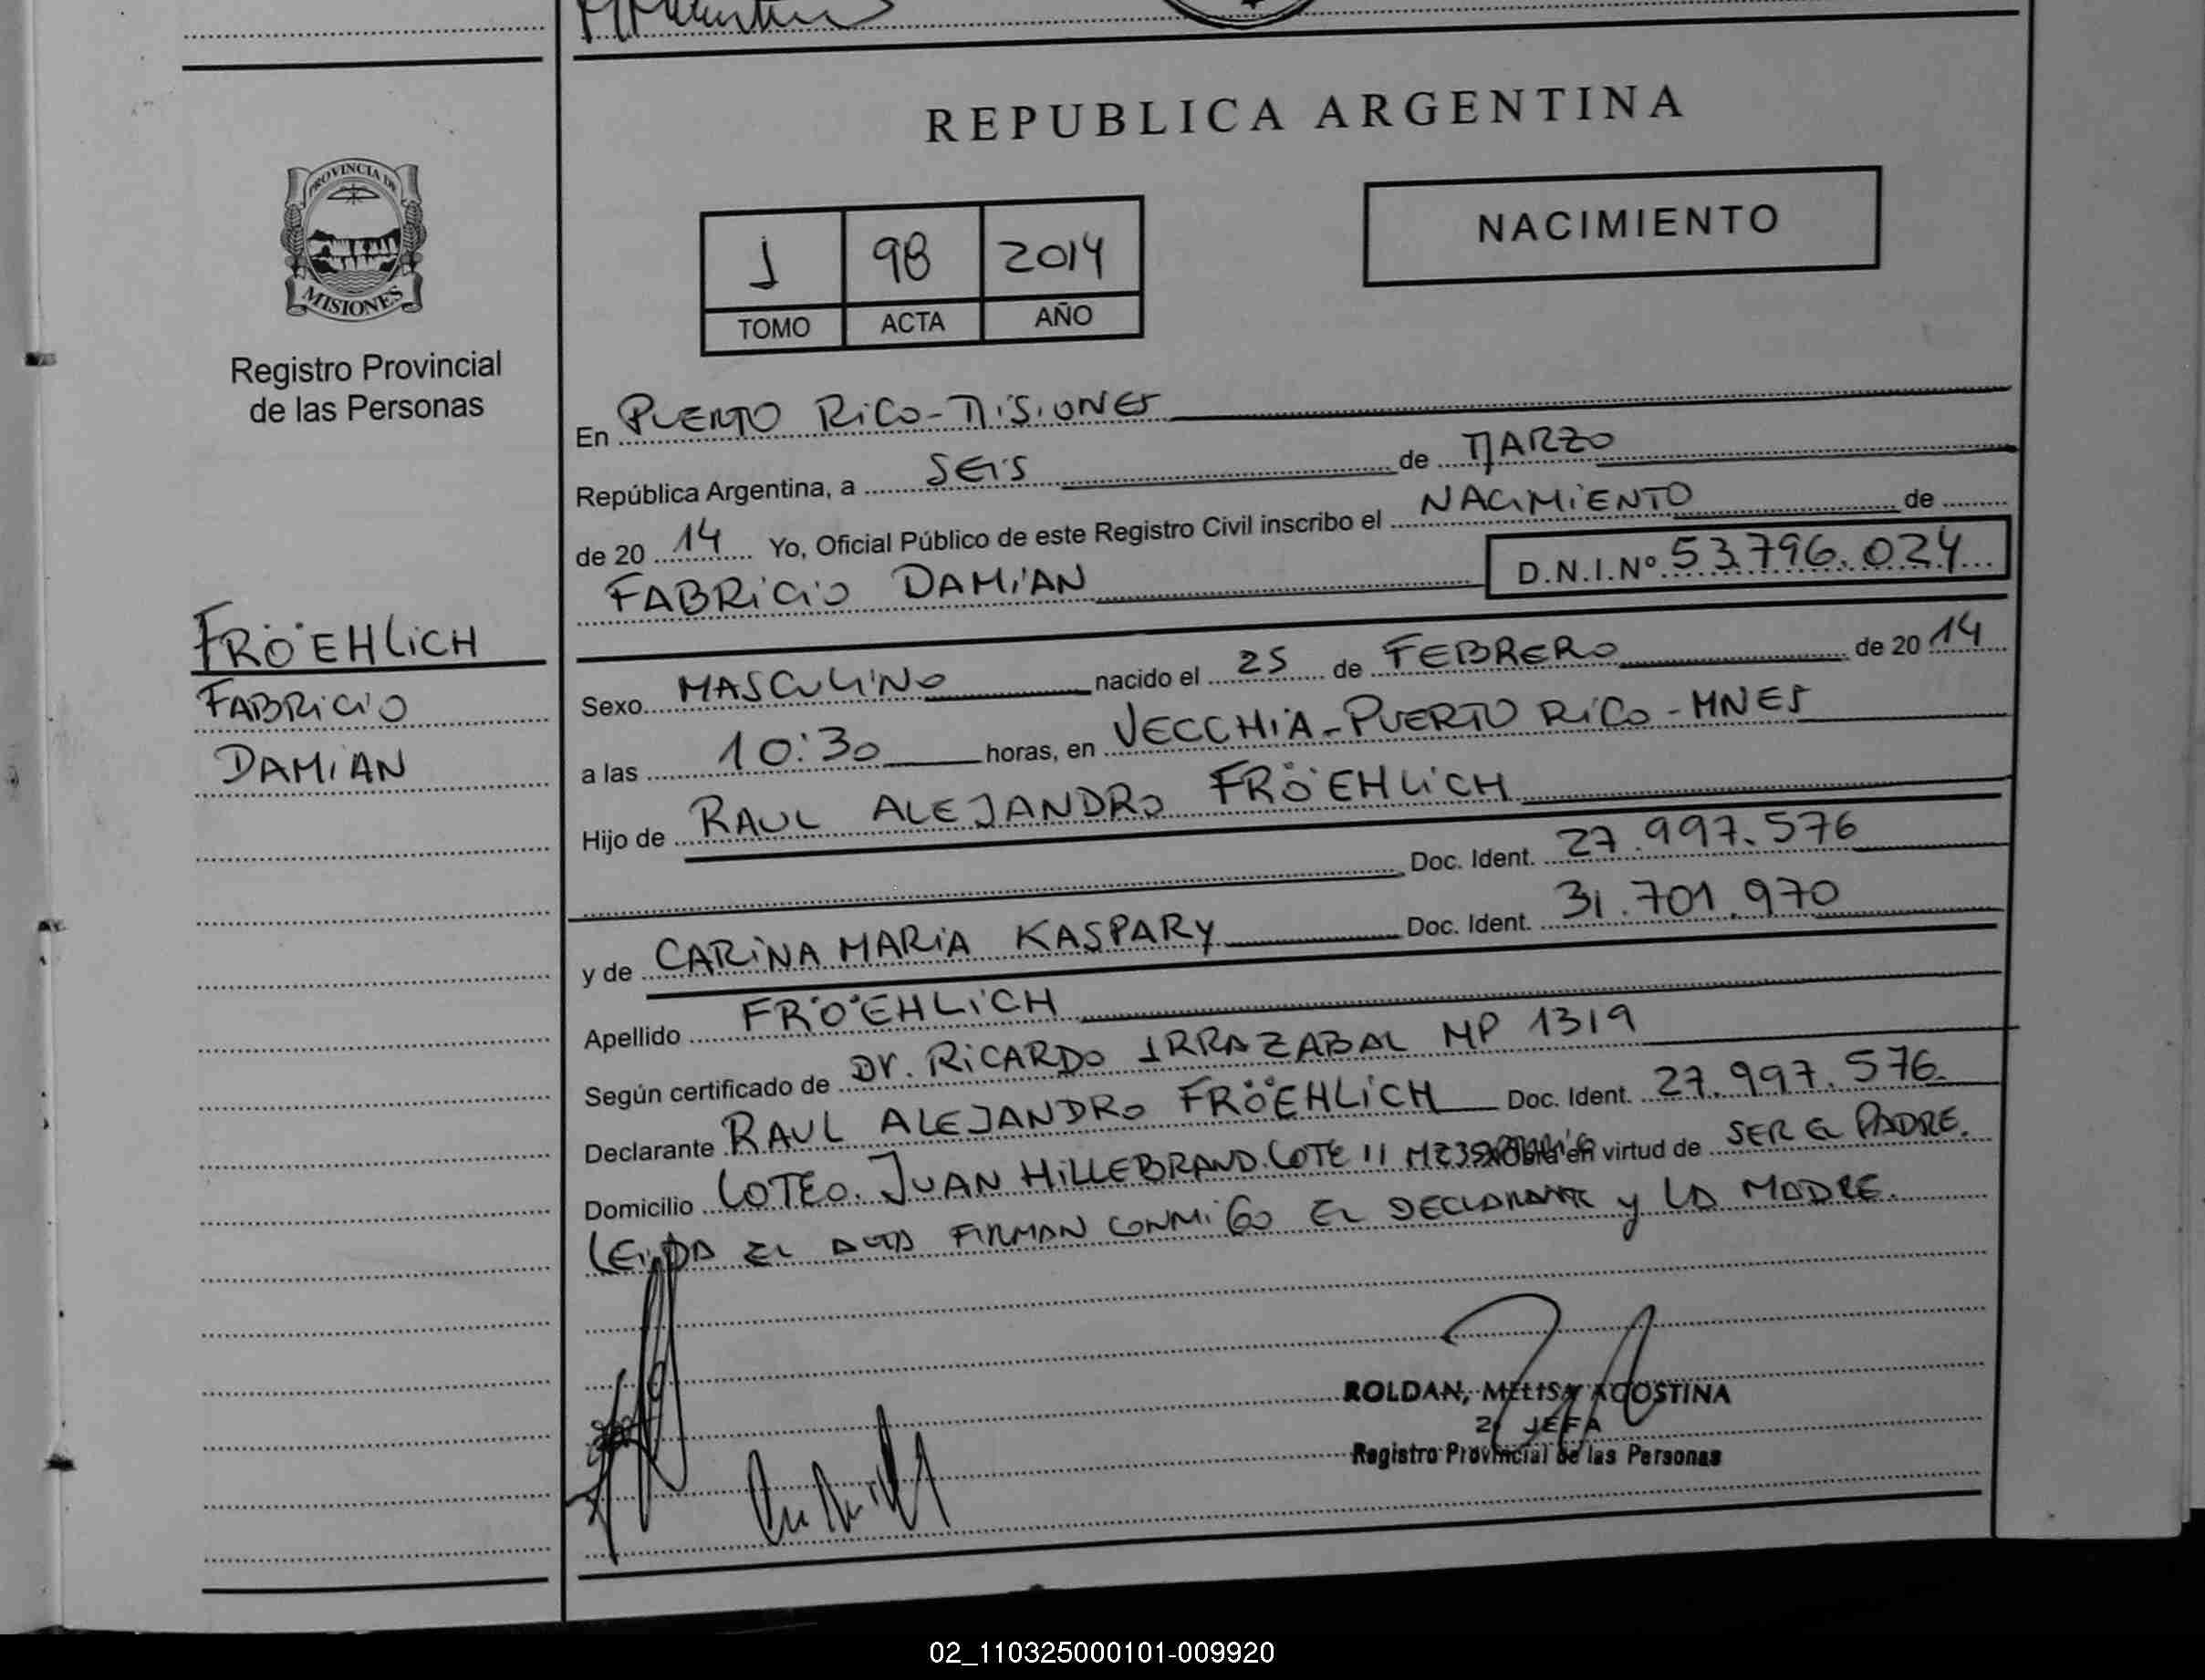 REPUBLICA ARGENTINA
PROVINCIA DE
MISIONES
Registro Provincial
de las Personas
NACIMIENTO
1 98 2014
TOMO ACTA AÑO
En PUERTO RICO - MISIONES
República Argentina, a SEIS de MARZO
de 20 14 Yo, Oficial Público de este Registro Civil inscribo el NACIMIENTO de
FABRICIO DAMIAN D.N.I.Nº 53.796.024
FRÖEHLICH
FABRICIO
DAMIAN
Sexo MASCULINO nacido el 25 de FEBRERO de 20 14
a las 10:30 horas, en VECCHIA - PUERTO RICO - MNES
Hijo de RAUL ALEJANDRO FRÖEHLICH
Doc. Ident. 27.997.576
y de CARINA MARIA KASPARY Doc. Ident. 31.701.970
Apellido FRÖEHLICH
Según certificado de Dr. RICARDO IRRAZABAL MP 1319
Declarante RAUL ALEJANDRO FRÖEHLICH Doc. Ident. 27.997.576
Domicilio LOTEO. JUAN HILLEBRAND. LOTE 11 MZ en virtud de SER EL PADRE.
LEIDA EL ACTA FIRMAN CONMIGO EL DECLARANTE y LA MADRE.
ROLDAN, MELISA AGOSTINA
2 JEFA
Registro Provincial de las Personas
02_110325000101-009920